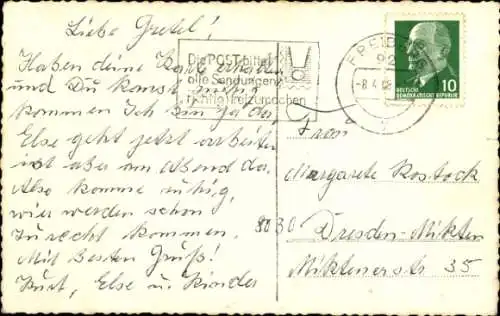 Liebe Gretel!
Haben deine Karte erhalten
und Du kannst ruhig
kommen Ich bin ja da,
Else geht jetzt arbeiten
ist aber am Abend da.
Also komme ruhig,
wir werden schon
zurecht kommen.
Mit besten Gruß!
Kurt, Else u Kinder
Die POST bittet
alle Sendungen
richtig freizumachen
FREIBERG
92
-8.4.
10
DEUTSCHE
DEMOKRATISCHE REPUBLIK
Frau
Margarete Rostock
8030 Dresden-Mikten
Miktenerstr 35